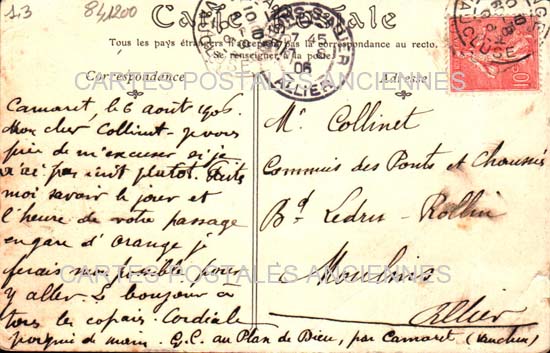 1.3 841200
Carte Postale
Tous les pays étrangers n'acceptent pas la correspondance au recto.
Se renseigner à la poste
Correspondance
Adresse
MOULINS-S-ALLIER
7 45
06
ALLIER
VAUCLUSE
Camaret, le 6 août 1906
Mon cher Collinet - je vous
prie de m'excuser si je
n'ai pas écrit plutôt. Faits
moi savoir le jour et
l'heure de votre passage
en gare d'Orange je
ferais mon possible pour
y aller. Le bonjour à
tous les copais. Cordiale
poignée de main. G. C. au Plan de Dieu, par Camaret (Vaucluse)
Mr Collinet
Commis des Ponts et Chaussées
Bd Ledru-Rollin
Moulins
Allier
CARTES POSTALES ANCIENNES
CARTES POSTALES ANCIENNES